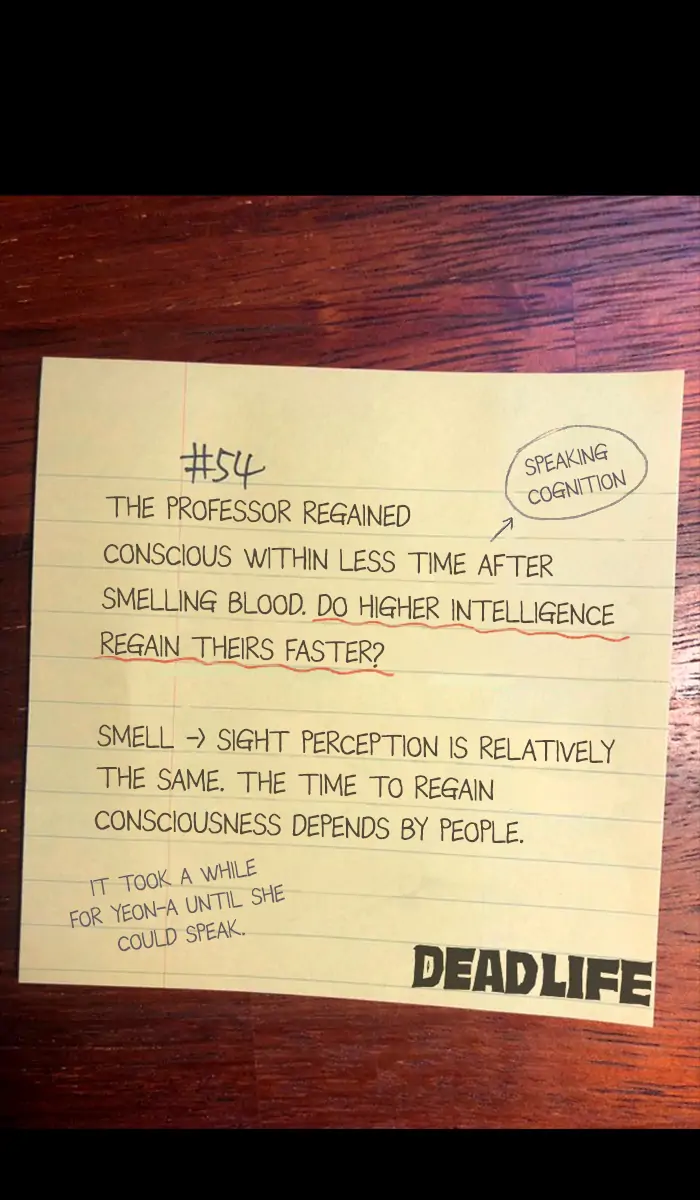 #54
SPEAKING
COGNITION
THE PROFESSOR REGAINED
CONSCIOUS WITHIN LESS TIME AFTER
SMELLING BLOOD. DO HIGHER INTELLIGENCE
REGAIN THEIRS FASTER?
SMELL → SIGHT PERCEPTION IS RELATIVELY
THE SAME. THE TIME TO REGAIN
CONSCIOUSNESS DEPENDS BY PEOPLE.
IT TOOK A WHILE
FOR YEON-A UNTIL SHE
COULD SPEAK.
DEAD LIFE